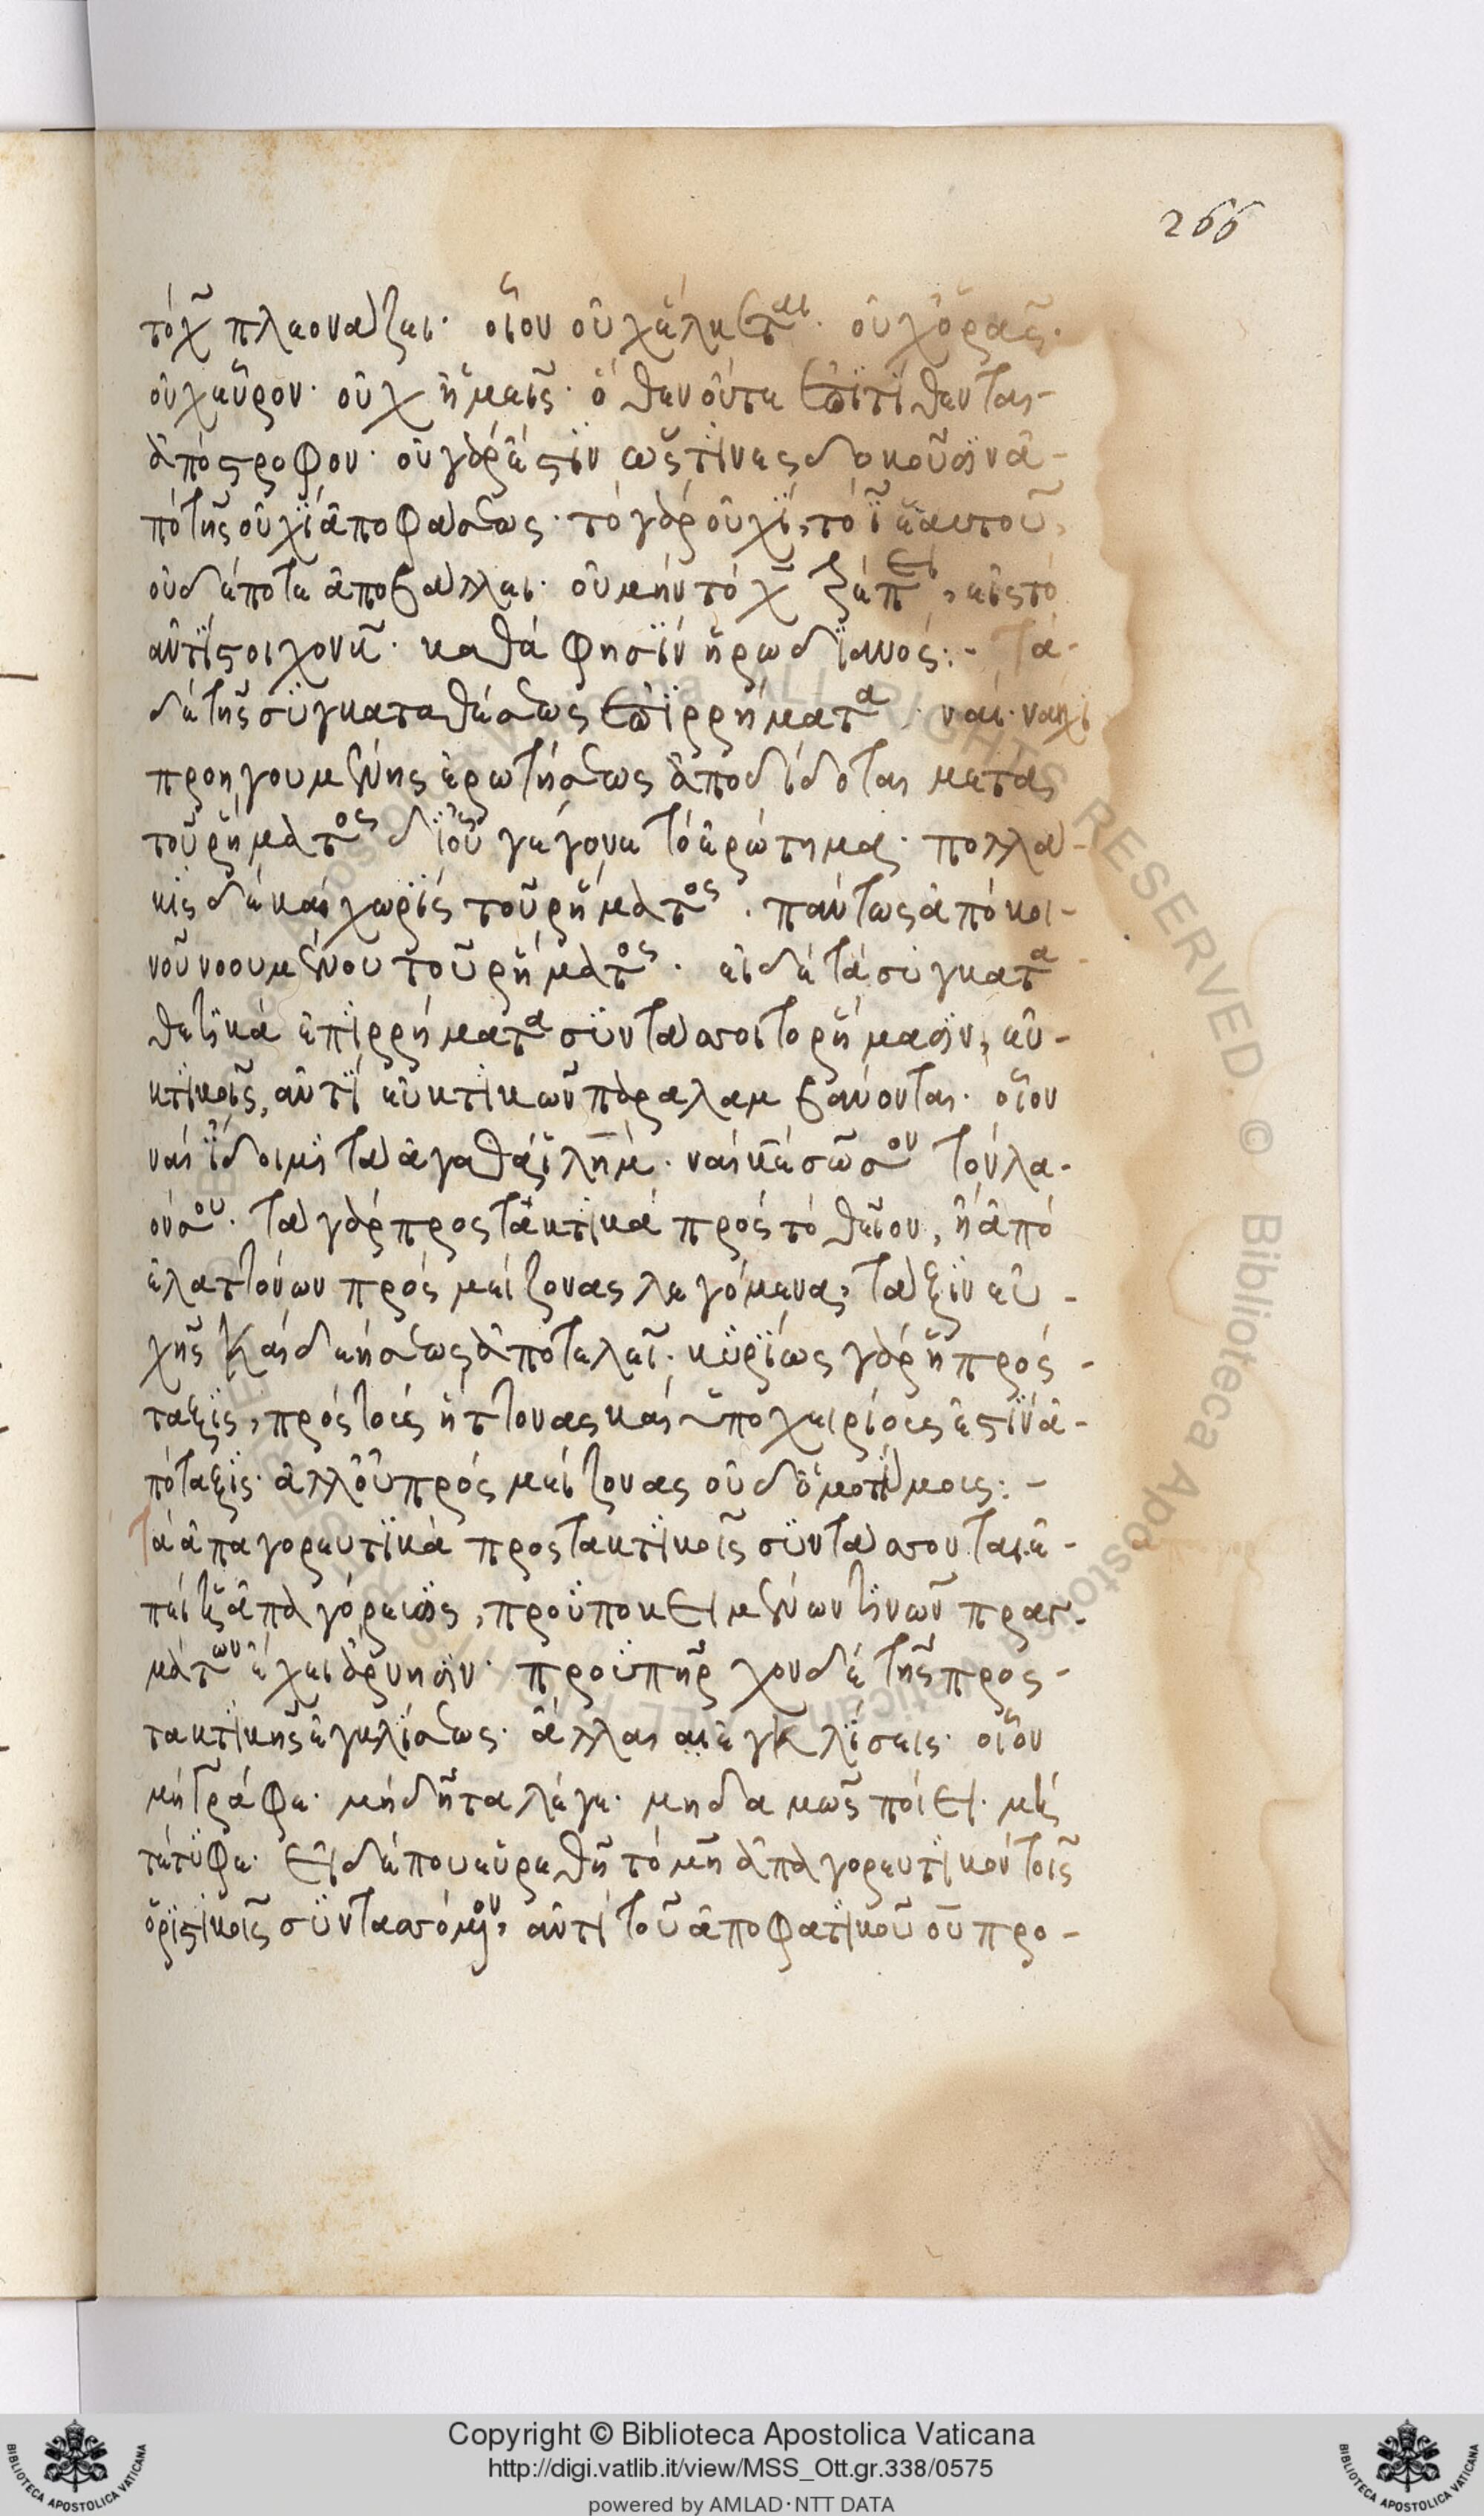 266
τὸ χ̃ πλεονάζει· οἷον οὐχ ἕλκεται· οὐχ ὁρᾶς·
οὐχ εὗρον· οὐχ ἡμεῖς· ὅθεν οὔτε ἐπιτίθενται
ἀπόστροφον· οὐ γάρ ἐστιν ὥς τινες δοκοῦσιν ἀ-
πὸ τῆς οὐχὶ ἀποφάσεως· τὸ γὰρ οὐχὶ, τὸ ϊ ἑαυτοῦ,
οὐδέποτε ἀποβάλλει· οὐ μὴν τὸ χ̃ τρέπει, εἰς τὸ
ἀντίστοιχον κ̃· καθά φησιν ἡρωδιανός:- Τὰ
δὲ τῆς συγκαταθέσεως ἐπιρρήματα· ναί· ναιχὶ
προηγουμένης ἐρωτήσεως ἀποδίδοται μετὰ
τοῦ ῥήματος δι' οὗ γέγονε τὸ ἐρώτημα· πολλά-
κις δὲ καὶ χωρὶς τοῦ ῥήματος· πάντως ἀπὸ κοι-
νοῦ νοουμένου τοῦ ῥήματος· εἰ δὲ τὰ συγκατα
θετικὰ ἐπιρρήματα συντάσσοιτο ῥήμασιν, εὐ-
κτικοῖς, ἀντὶ εὐκτικῶν παραλαμβάνονται· οἷον
ναὶ ἴδοιμι τὰ ἀγαθὰ ϊλη̅μ· ναὶ κ̅ε σῶσον τὸν λα-
όν σου· τὰ γὰρ προστακτικὰ πρὸς τὸ θεῖον, ἢ ἀπὸ
ἐλαττόνων πρὸς μείζονας λεγόμενα, τάξιν εὐ-
χῆς καὶ δεήσεως ἀποτελεῖ· κυρίως γὰρ ἡ πρόσ-
ταξις, πρὸς τοὺς ἥττονας καὶ ὑποχειρίους ἐστὶν ἀ-
πόταξις· ἀλλ' οὐ πρὸς μείζονας οὐδ' ὁμοτίμους:-
Τὰ ἀπαγορευτικὰ προστακτικοῖς συντάσσονται. ἐ-
πεὶ ἡ ἀπαγόρευσις, προϋποκειμένων τινῶν πραγ-
μάτων ἔχει ἄρνησιν· προϋπῆρχον δὲ τῆς προσ-
τακτικῆς ἐγκλίσεως· ἄλλαι αἱ ἐγκλίσεις· οἷον
μὴ γράφε· μὴ δῆτα λέγε· μηδαμῶς ποίει· μὴ
τέτυφε· εἰ δέ που εὑρεθῇ τὸ μὴ ἀπαγορευτικὸν τοῖς
ὁριστικοῖς συντασσόμενον, ἀντὶ τοῦ ἀποφατικοῦ οὐ προ-
Copyright © Biblioteca Apostolica Vaticana
http://digi.vatlib.it/view/MSS_Ott.gr.338/0575
powered by AMLAD·NTT DATA